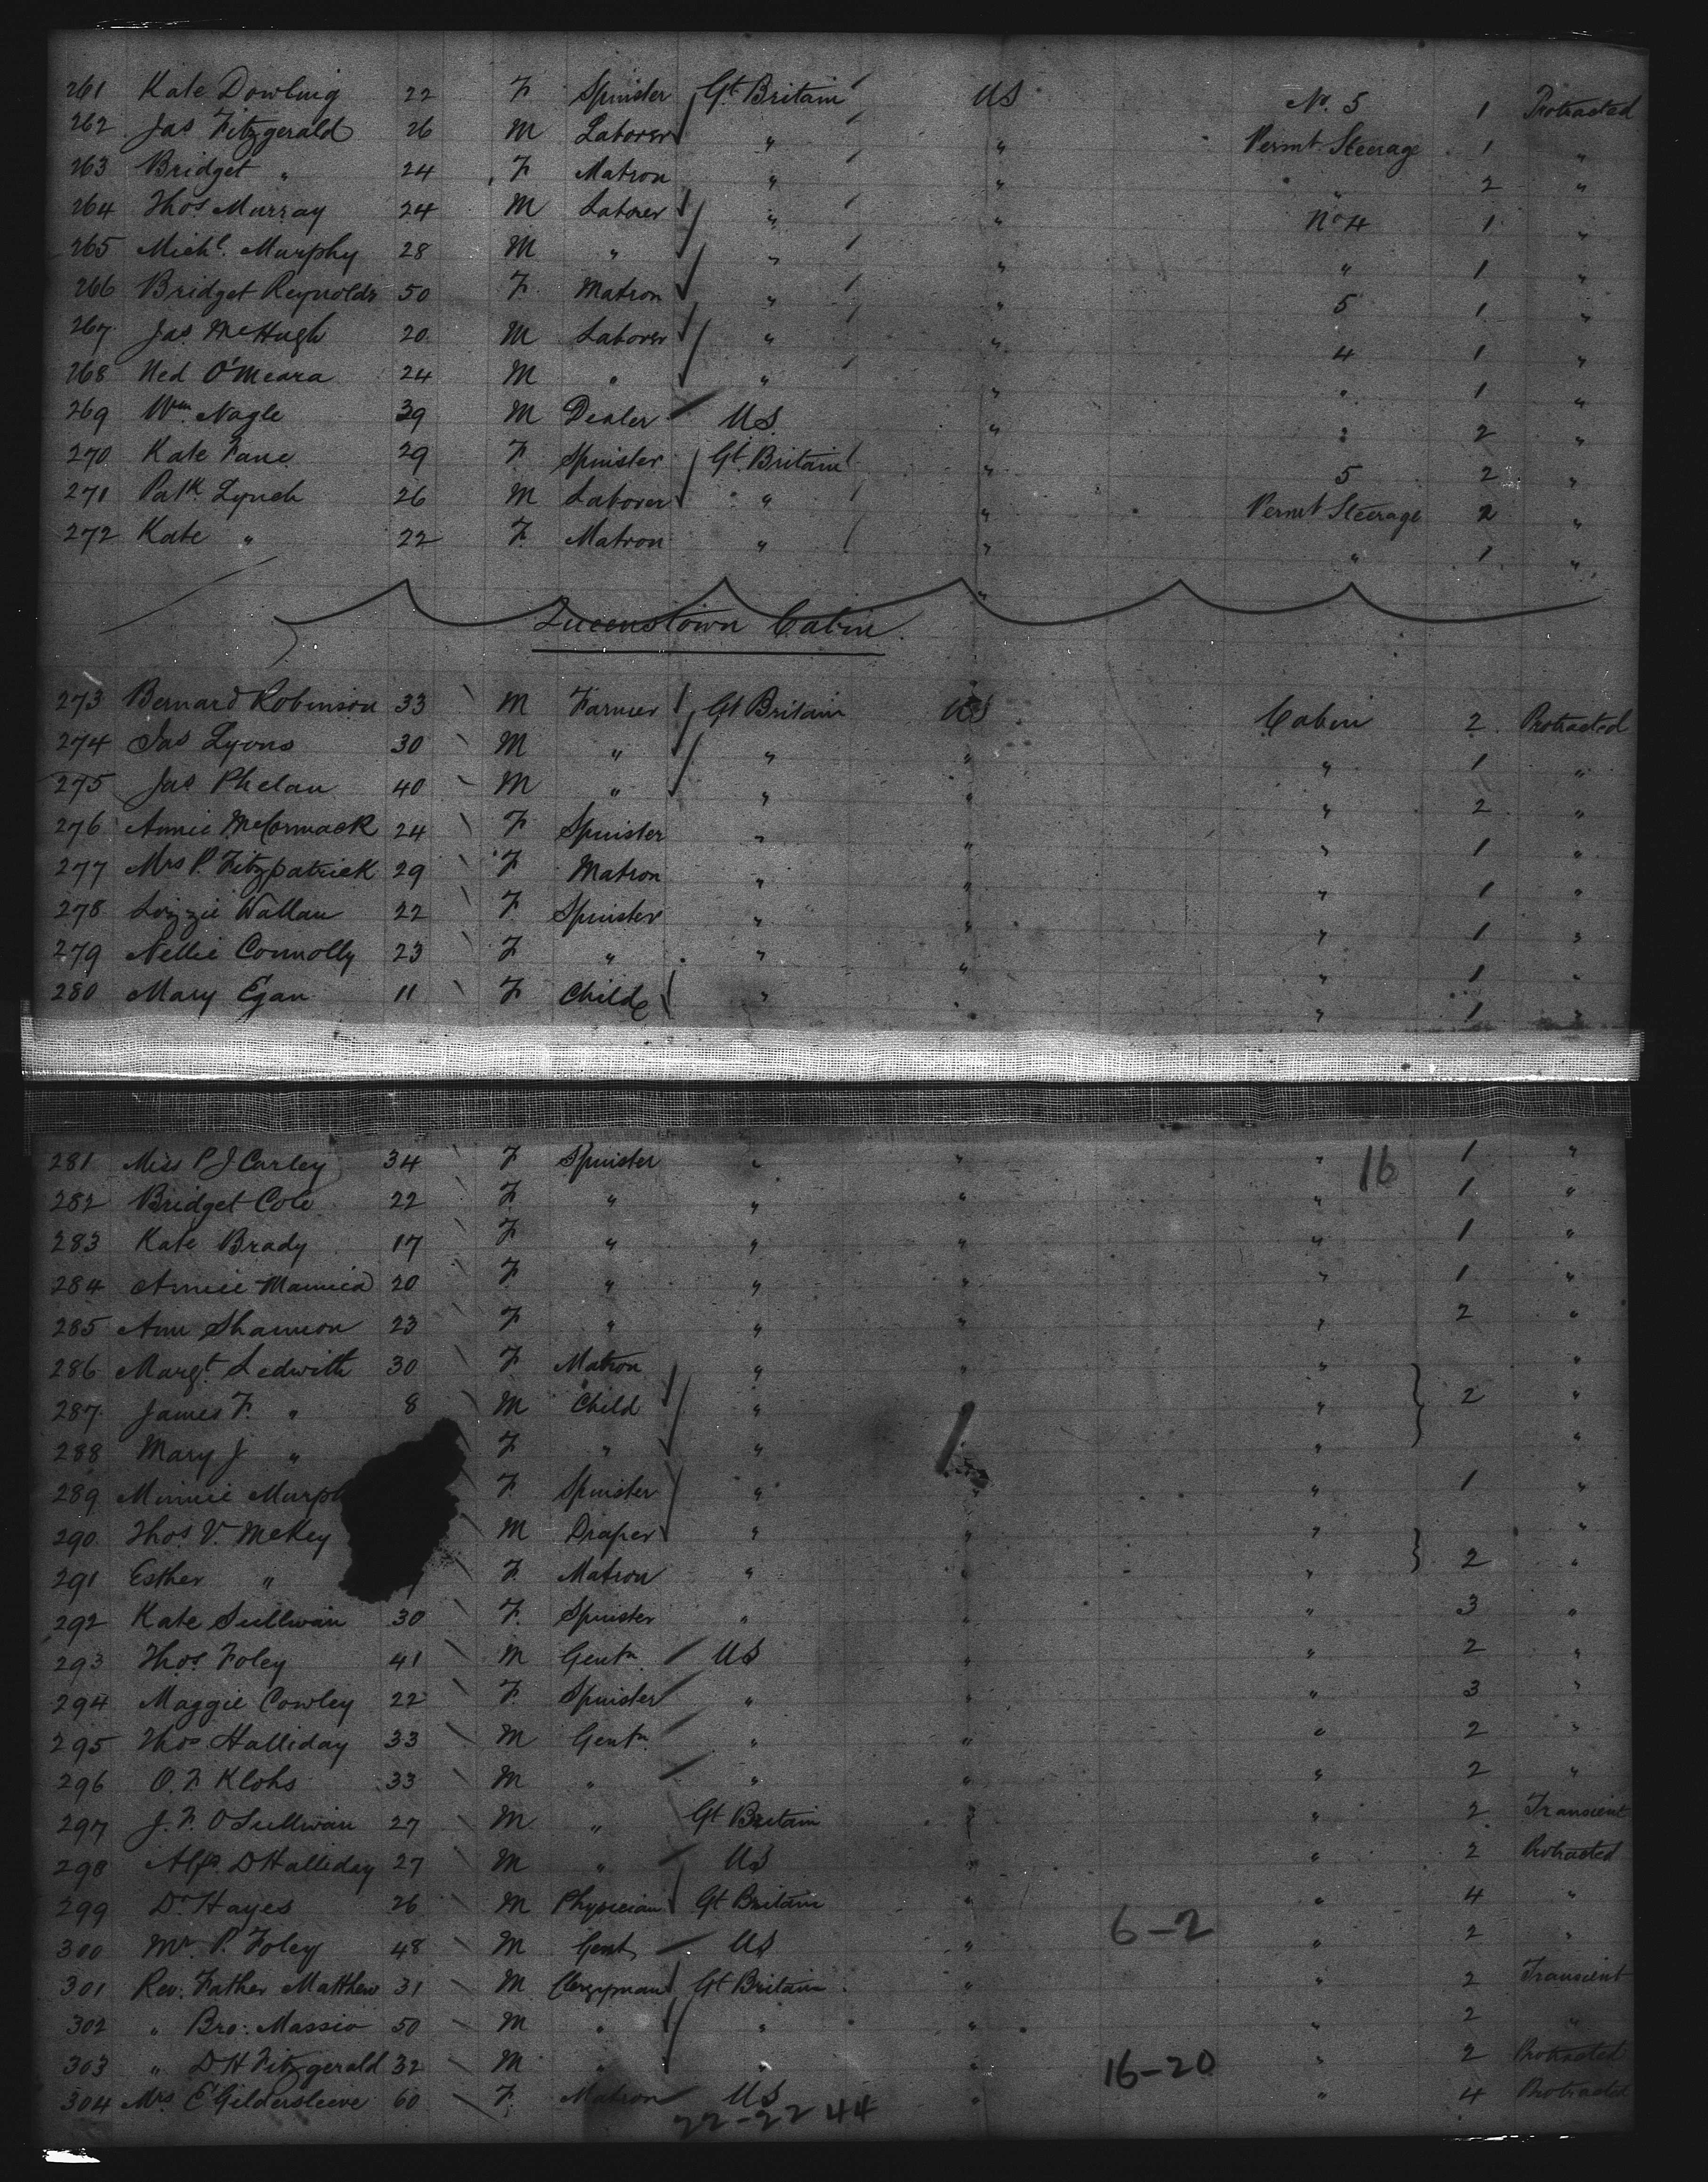 261 Kate Dowling 22 F Spinster Gt Britain US No. 5 1 Protracted
262 Jas Fitzgerald 26 M Laborer " " Permt Steerage 1 "
263 Bridget " 24 F Matron " " " 2 "
264 Thos Murray 24 M Laborer " " No 4 1 "
265 Michl. Murphy 28 M " " " " 1 "
266 Bridget Reynolds 50 F Matron " " 5 1 "
267 Jas McHugh 20 M Laborer " " 4 1 "
268 Ned O'Meara 24 M " " " " 1 "
269 Wm Nagle 39 M Dealer US " " 2 "
270 Kate Fane 29 F Spinster Gt Britain " 5 2 "
271 Patk Lynch 26 M Laborer " " Permt Steerage 2 "
272 Kate " 22 F Matron " " " 1 "
Queenstown Cabin.
273 Bernard Robinson 33 M Farmer Gt Britain US Cabin 2 Protracted
274 Jas Lyons 30 M " " " " 1 "
275 Jas Phelan 40 M " " " " 2 "
276 Annie McCormack 24 F Spinster " " " 1 "
277 Mrs P. Fitzpatrick 29 F Matron " " " 1 "
278 Lizzie Wallau 22 F Spinster " " " 1 "
279 Nellie Connolly 23 F " " " " 1 "
280 Mary Egan 11 F Child " " " 1 "
281 Miss P J Carley 34 F Spinster " " " 16 1 "
282 Bridget Cole 22 F " " " " 1 "
283 Kate Brady 17 F " " " " 1 "
284 Annie 20 F " " " " 1 "
285 Ann Shannon 23 F " " " " 2 "
286 Margt Ledwith 30 F Matron " " "
287 James F. " 8 M Child " " " 2 "
288 Mary J " F " " " "
289 Minnie Murph F Spinster " " " 1 "
290 Thos V. McKey M Draper " " " "
291 Esther " F Matron " " 2 "
292 Kate Sullivan 30 F Spinster " " " 3 "
293 Thos Foley 41 M Gentn US " " 2 "
294 Maggie Cowley 22 F Spinster " " " 3 "
295 Thos Halliday 33 M Gentn " " " 2 "
296 O. F. Klohs 33 M " " " " 2 "
297 J. F. O Sullivan 27 M " Gt Britain " " 2 Transient
298 Alfd. D Halliday 27 M " US " " 2 Protracted
299 Dr Hayes 26 M Physician Gt Britain " " 4 "
300 Mr P. Foley 48 M Gent US " 6-2 " 2 "
301 Rev. Father Matthew 31 M Clergyman Gt Britain " " 2 Transient
302 " Bro: Massio 50 M " " " " 2 "
303 " D H Fitzgerald 32 M " " " 16-20 " 2 Protracted
304 Mrs E Gildersleeve 60 F Matron US " " 4 Protracted
22-22 44